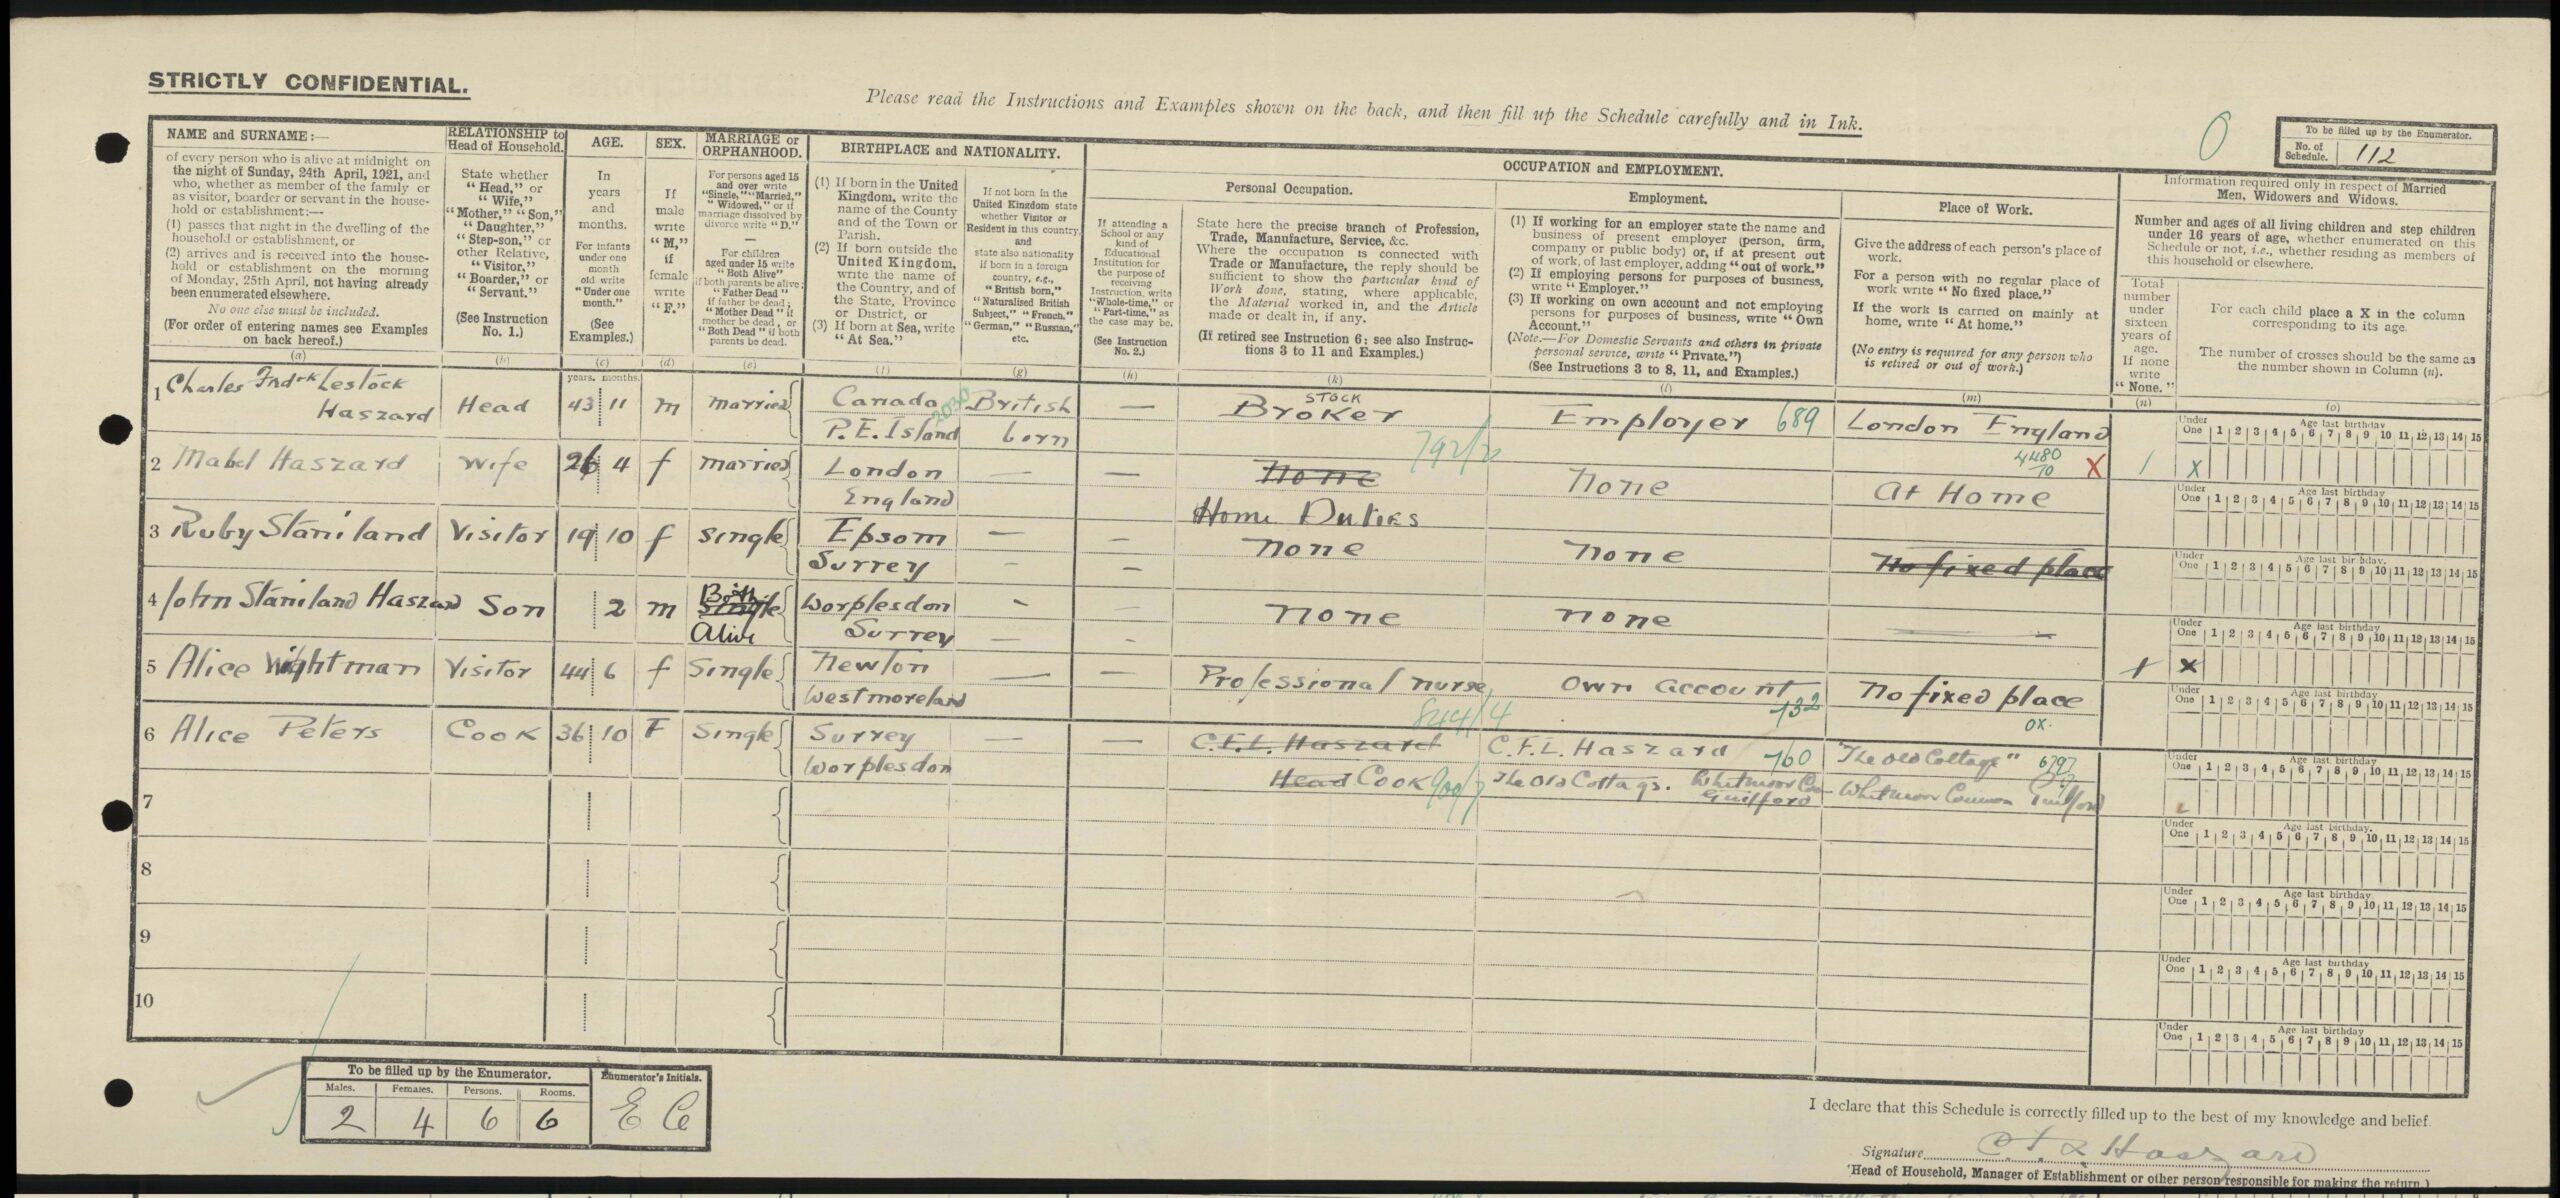 STRICTLY CONFIDENTIAL.
Please read the Instructions and Examples shown on the back, and then fill up the Schedule carefully and in Ink.
To be filled up by the Enumerator.
No. of Schedule. 112
NAME and SURNAME:—
of every person who is alive at midnight on
the night of Sunday, 24th April, 1921, and
who, whether as member of the family or
as visitor, boarder or servant in the house-
hold or establishment:—
(1) passes that night in the dwelling of the
household or establishment, or
(2) arrives and is received into the house-
hold or establishment on the morning
of Monday, 25th April, not having already
been enumerated elsewhere.
No one else must be included.
(For order of entering names see Examples
on back hereof.)
(a)
RELATIONSHIP to
Head of Household.
State whether
"Head," or
"Wife,"
"Mother," "Son,"
"Daughter,"
"Step-son," or
other Relative,
"Visitor,"
"Boarder," or
"Servant."
(See Instruction
No. 1.)
(b)
AGE.
In
years
and
months.
For infants
under one
month
old write
"Under one
month."
(See
Examples.)
(c)
years. months.
SEX.
If
male
write
"M,"
if
female
write
"F."
(d)
MARRIAGE or
ORPHANHOOD.
For persons aged 15
and over write
"Single," "Married,"
"Widowed," or if
marriage dissolved by
divorce write "D."
—
For children
aged under 15 write
"Both Alive"
if both parents be alive;
"Father Dead"
if father be dead;
"Mother Dead" if
mother be dead, or
"Both Dead" if both
parents be dead.
(e)
BIRTHPLACE and NATIONALITY.
(1) If born in the United
Kingdom, write the
name of the County
and of the Town or
Parish.
(2) If born outside the
United Kingdom,
write the name of
the Country, and of
the State, Province
or District, or
(3) If born at Sea, write
"At Sea."
(f)
If not born in the
United Kingdom state
whether Visitor or
Resident in this country,
and
state also nationality
if born in a foreign
country, e.g.,
"British born,"
"Naturalised British
Subject," "French,"
"German," "Russian,"
etc.
(g)
OCCUPATION and EMPLOYMENT.
If attending a
School or any
kind of
Educational
Institution for
the purpose of
receiving
Instruction, write
"Whole-time," or
"Part-time," as
the case may be.
(See Instruction
No. 2.)
(h)
Personal Occupation.
State here the precise branch of Profession,
Trade, Manufacture, Service, &c.
Where the occupation is connected with
Trade or Manufacture, the reply should be
sufficient to show the particular kind of
Work done, stating, where applicable,
the Material worked in, and the Article
made or dealt in, if any.
(If retired see Instruction 6; see also Instruc-
tions 3 to 11 and Examples.)
(k)
Employment.
(1) If working for an employer state the name and
business of present employer (person, firm,
company or public body) or, if at present out
of work, of last employer, adding "out of work."
(2) If employing persons for purposes of business,
write "Employer."
(3) If working on own account and not employing
persons for purposes of business, write "Own
Account."
(Note.—For Domestic Servants and others in private
personal service, write "Private.")
(See Instructions 3 to 8, 11, and Examples.)
(l)
Place of Work.
Give the address of each person's place of
work.
For a person with no regular place of
work write "No fixed place."
If the work is carried on mainly at
home, write "At home."
(No entry is required for any person who
is retired or out of work.)
(m)
Information required only in respect of Married
Men, Widowers and Widows.
Number and ages of all living children and step children
under 16 years of age, whether enumerated on this
Schedule or not, i.e., whether residing as members of
this household or elsewhere.
Total
number
under
sixteen
years of
age.
If none
write
"None."
(n)
For each child place a X in the column
corresponding to its age.
The number of crosses should be the same as
the number shown in Column (n).
(o)
Under One Age last birthday 1 2 3 4 5 6 7 8 9 10 11 12 13 14 15
1 Charles Fredrk Lestock
Haszard Head 43 11 m married Canada British — STOCK Broker Employer 689 London England
P.E. Island 2030 born 792/2 4480/10 X 1 X
2 Mabel Haszard Wife 26 4 f married London — — None None At Home
England Home Duties
3 Ruby Staniland Visitor 19 10 f Single Epsom — — None None No fixed place
Surrey
4 John Staniland Haszard Son 2 m Single Both Alive Worplesdon — None None —
Surrey
1 X
5 Alice Wightman Visitor 44 6 f Single Newton — — Professional nurse own account No fixed place
Westmoreland 844/4 732 ox.
6 Alice Peters Cook 36 10 F Single Surrey — — C.F.L. Haszard C.F.L. Haszard 760 "The Old Cottage"
Worplesdon Head Cook 900/7 The Old Cottage. Whitmoor Com Guilford Whitmoor Common Guilford
7
8
9
10
To be filled up by the Enumerator.
Males. Females. Persons. Rooms.
2 4 6 6
Enumerator's Initials.
E C
I declare that this Schedule is correctly filled up to the best of my knowledge and belief.
Signature C F L Haszard
Head of Household, Manager of Establishment or other person responsible for making the return.)